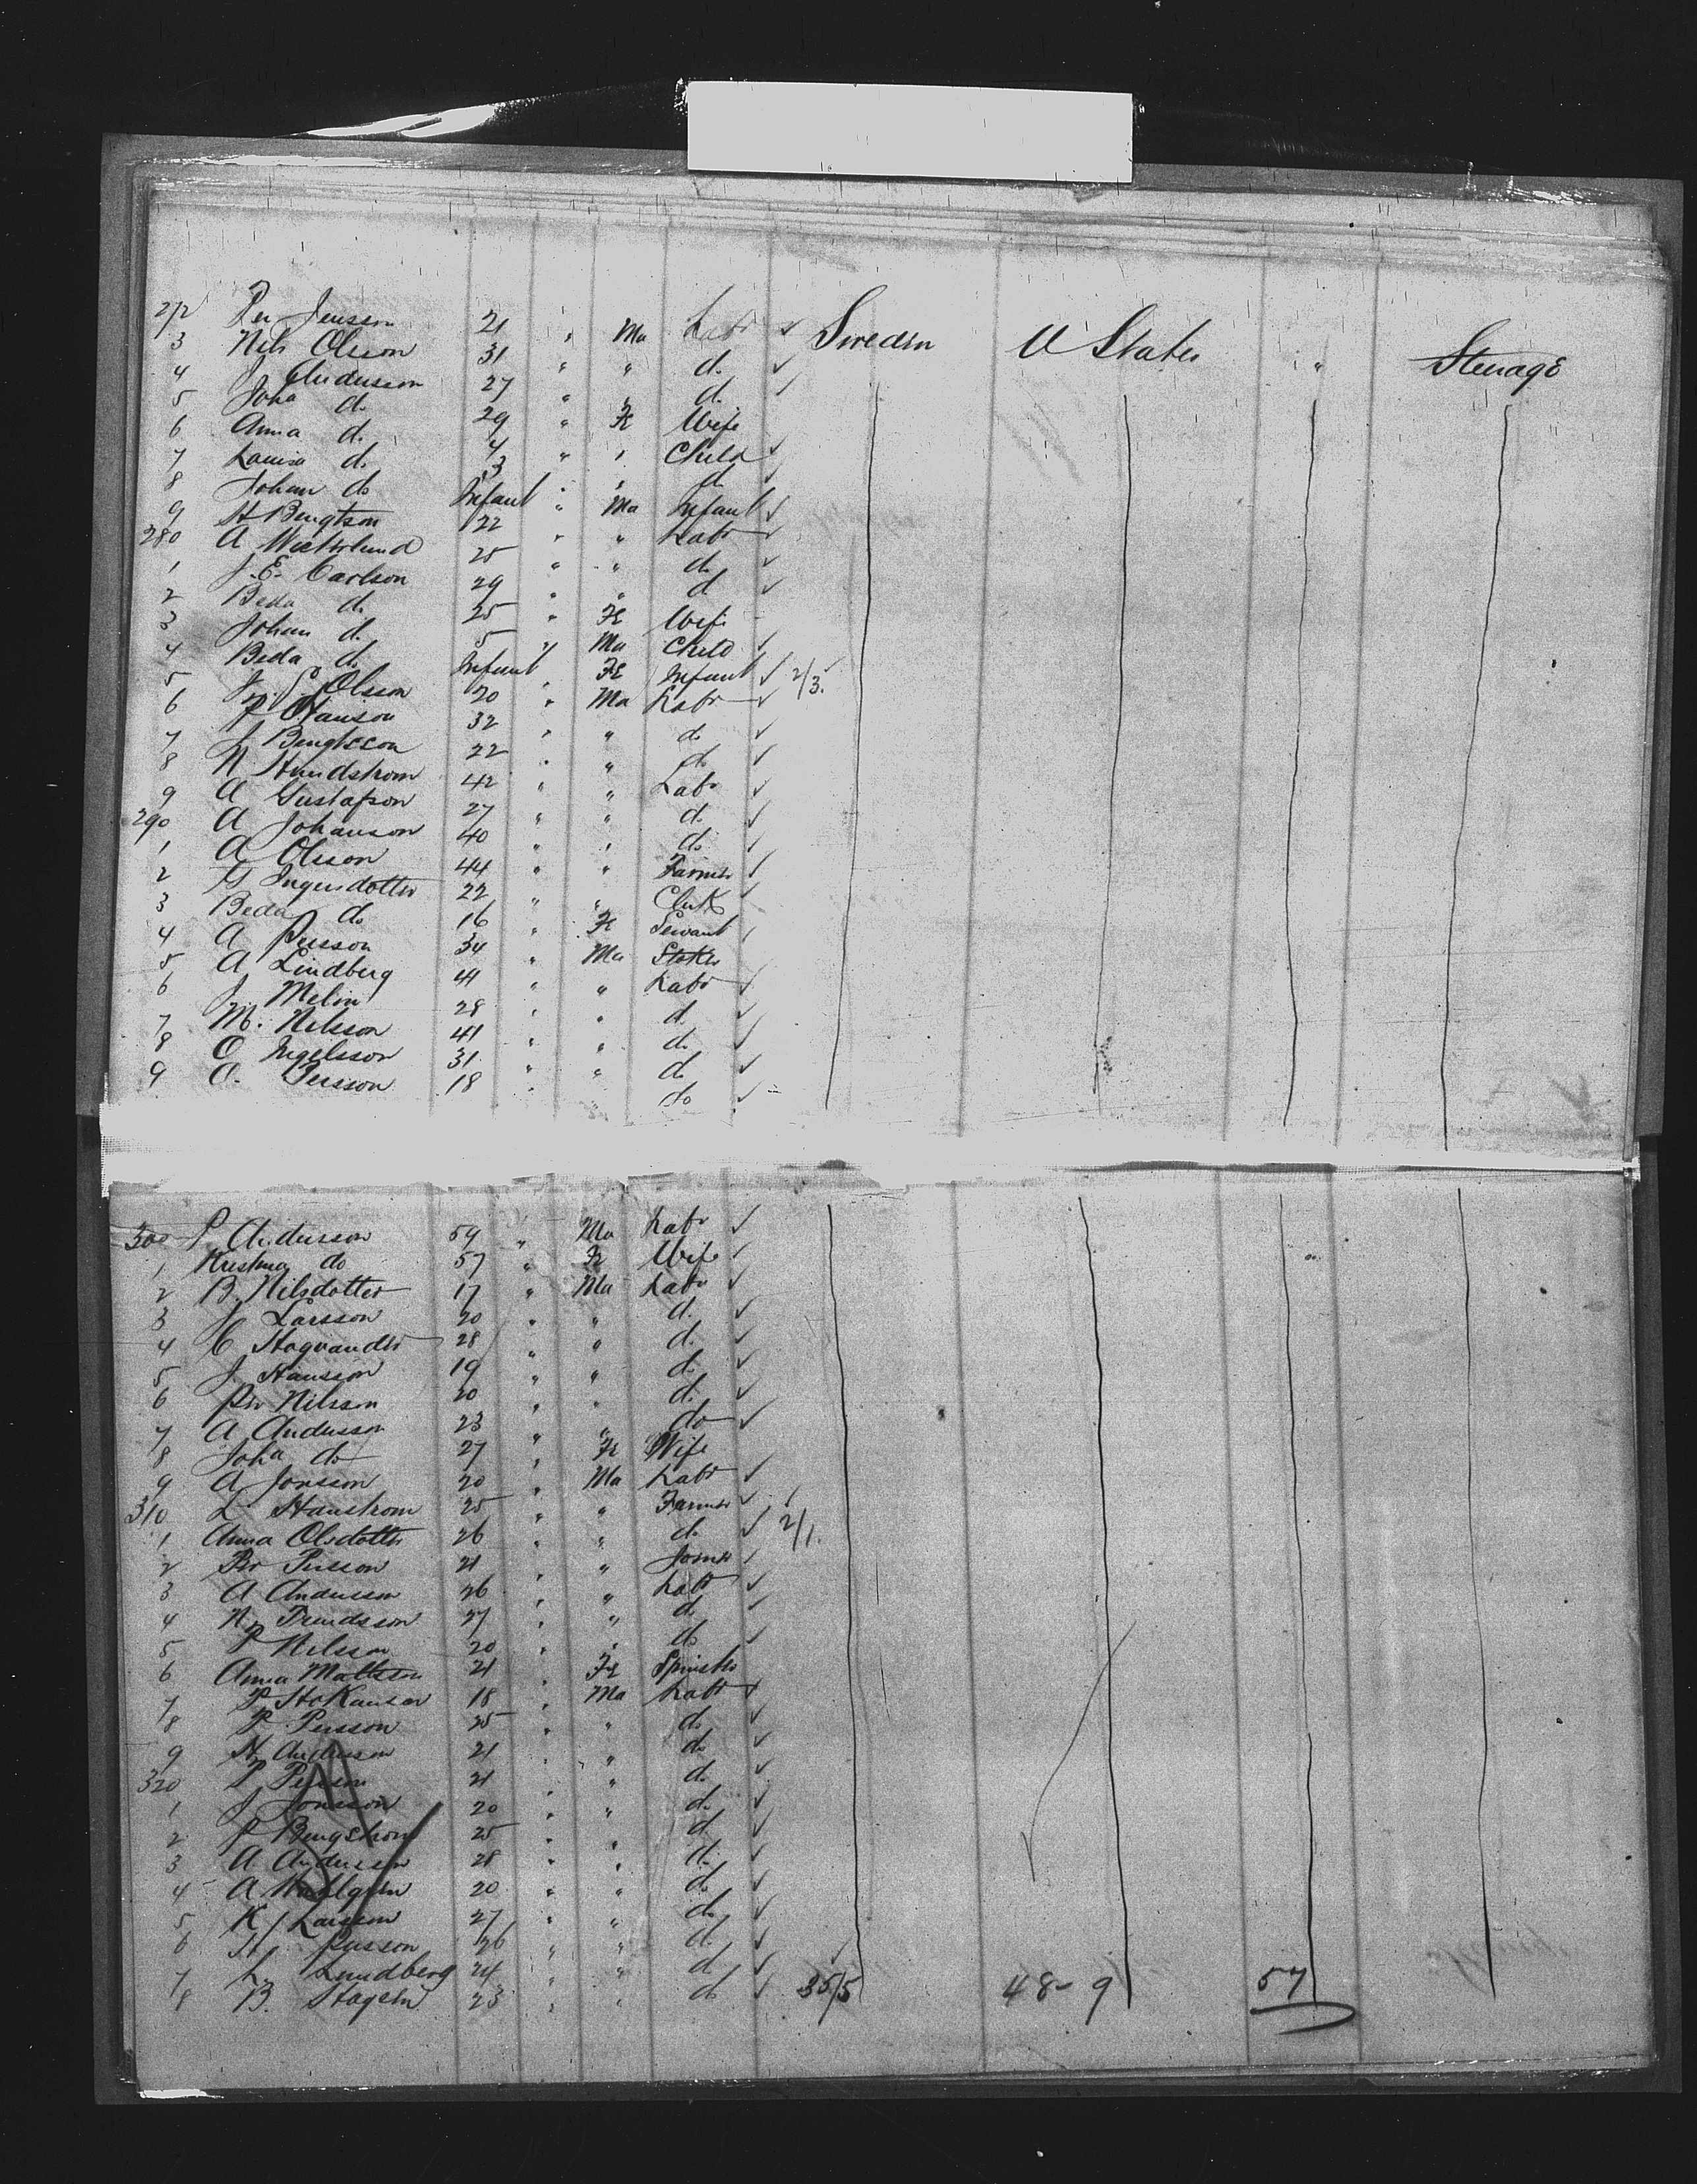 272 Per Jensson 21 " Ma Labr ✓ Sweden U States " Steerage
3 Nils Olsson 31 " " do ✓
4 J Andersson 27 " " do ✓
5 Joha do 29 " Fe Wife
6 Anna do 4 " " Child ✓
7 Lauisa do 3 " " do
8 Johan do Infant " Ma Infant ✓
9 H Bengtson 22 " " Labr ✓
280 A Westerlund 25 " " do ✓
1 J. E. Carlson 29 " " do ✓
2 Beda do 25 " Fe Wife
3 Johan do 5 " Ma Child ✓
4 Beda do Infant " Fe Infant ✓ 2/3.
5 Olsson 20 " Ma Labr ✓
6 P Hanson 32 " " do ✓
7 J Bengtsson 22 " " do ✓
8 N Hundstrom 42 " " Labr ✓
9 A Gustafson 27 " " do ✓
290 A Johanson 40 " " do ✓
1 A Olsson 44 " " Farmer ✓
2 G Ingersdotter 22 " " Clerk ✓
3 Beda do 16 " Fe Servant
4 A Persson 34 " Ma Stoker
5 A Lindberg 41 " " Labr ✓
6 J Melin 28 " " do ✓
7 M. Nilsson 41 " " do ✓
8 O Ingelsson 31 " " do ✓
9 O. Persson 18 " " do ✓
300 P Andersson 59 " Ma Labr ✓
1 Kristina do 57 " Fe Wife
2 B. Nilsdotter 17 " Ma Labr ✓
3 J Larsson 20 " " do ✓
4 C Hagvander 28 " " do ✓
5 J. Hansson 19 " " do ✓
6 Per Nilsson 20 " " do ✓
7 A Andersson 23 " " do ✓
8 Joha do 27 " Fe Wife
9 A Jonsson 20 " Ma Labr ✓
310 L Hanstrom 25 " " Farmer ✓
1 Anna Olsdotter 26 " " do ✓ 2/1.
2 Per Persson 21 " " Joiner
3 A Andersson 26 " " Labr ✓
4 N. Trundsson 27 " " do ✓
5 P Nilsson 20 " " do ✓
6 Anna Mattsson 21 " Fe Spinster
7 P Hokanson 18 " Ma Labr ✓
8 P. Persson 25 " " do ✓
9 H Andersson 21 " " do ✓
320 P Persson 21 " " do ✓
1 J Jonsson 20 " " do ✓
2 P Bengstrom 25 " " do ✓
3 A Andersson 28 " " do ✓
4 A Wahlgren 20 " " do ✓
5 K J Larsson 27 " " do ✓
6 H Persson 26 " " do ✓
7 L. Lundberg 24 " " do ✓
8 B. Hagelin 23 " " do ✓ 35/5 48-9 57